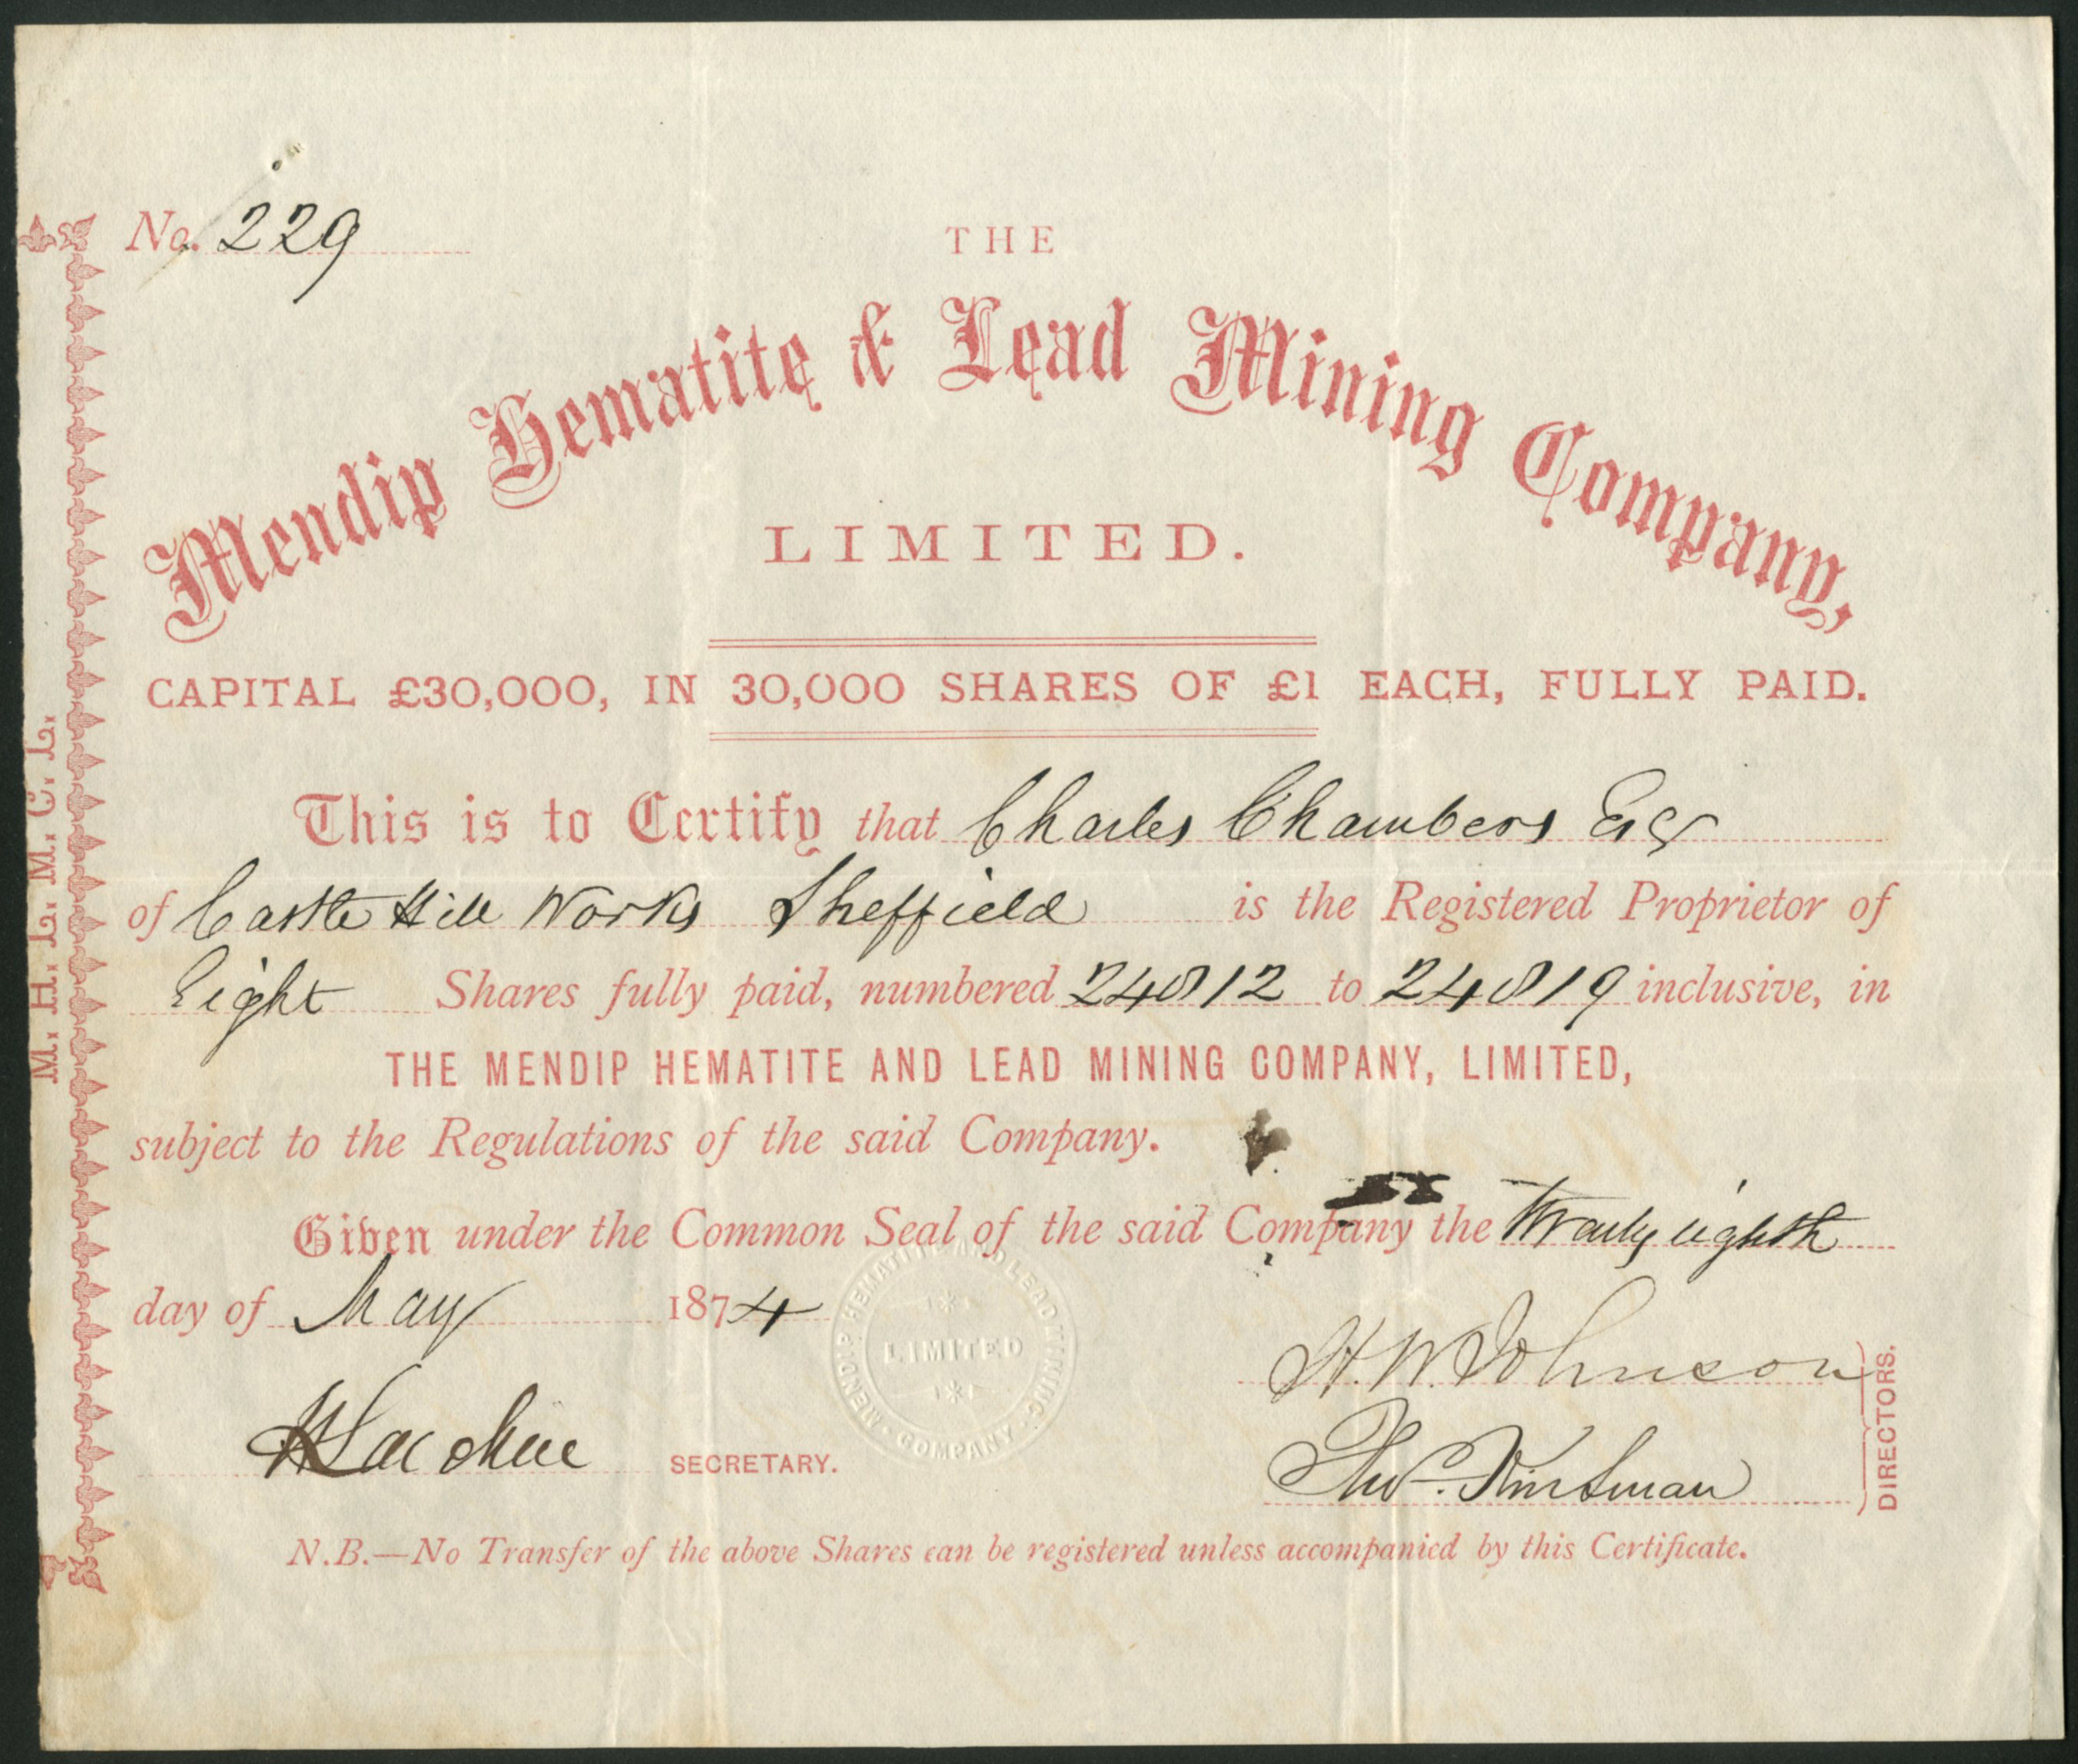 No. 229
THE
Mendip Hematite & Lead Mining Company,
LIMITED.
CAPITAL £30,000, IN 30,000 SHARES OF £1 EACH, FULLY PAID.
This is to Certify that Charles Chambers Esq
of Castle Hill Works Sheffield is the Registered Proprietor of
Eight Shares fully paid, numbered 24812 to 24819 inclusive, in
THE MENDIP HEMATITE AND LEAD MINING COMPANY, LIMITED,
subject to the Regulations of the said Company.
Given under the Common Seal of the said Company the Twenty eighth
day of May 1874
MENDIP HEMATITE AND LEAD MINING COMPANY
LIMITED
H. W. Johnson
SECRETARY.
Thos. Kinsman
DIRECTORS.
N.B.—No Transfer of the above Shares can be registered unless accompanied by this Certificate.
M. H. L. M. C. L.